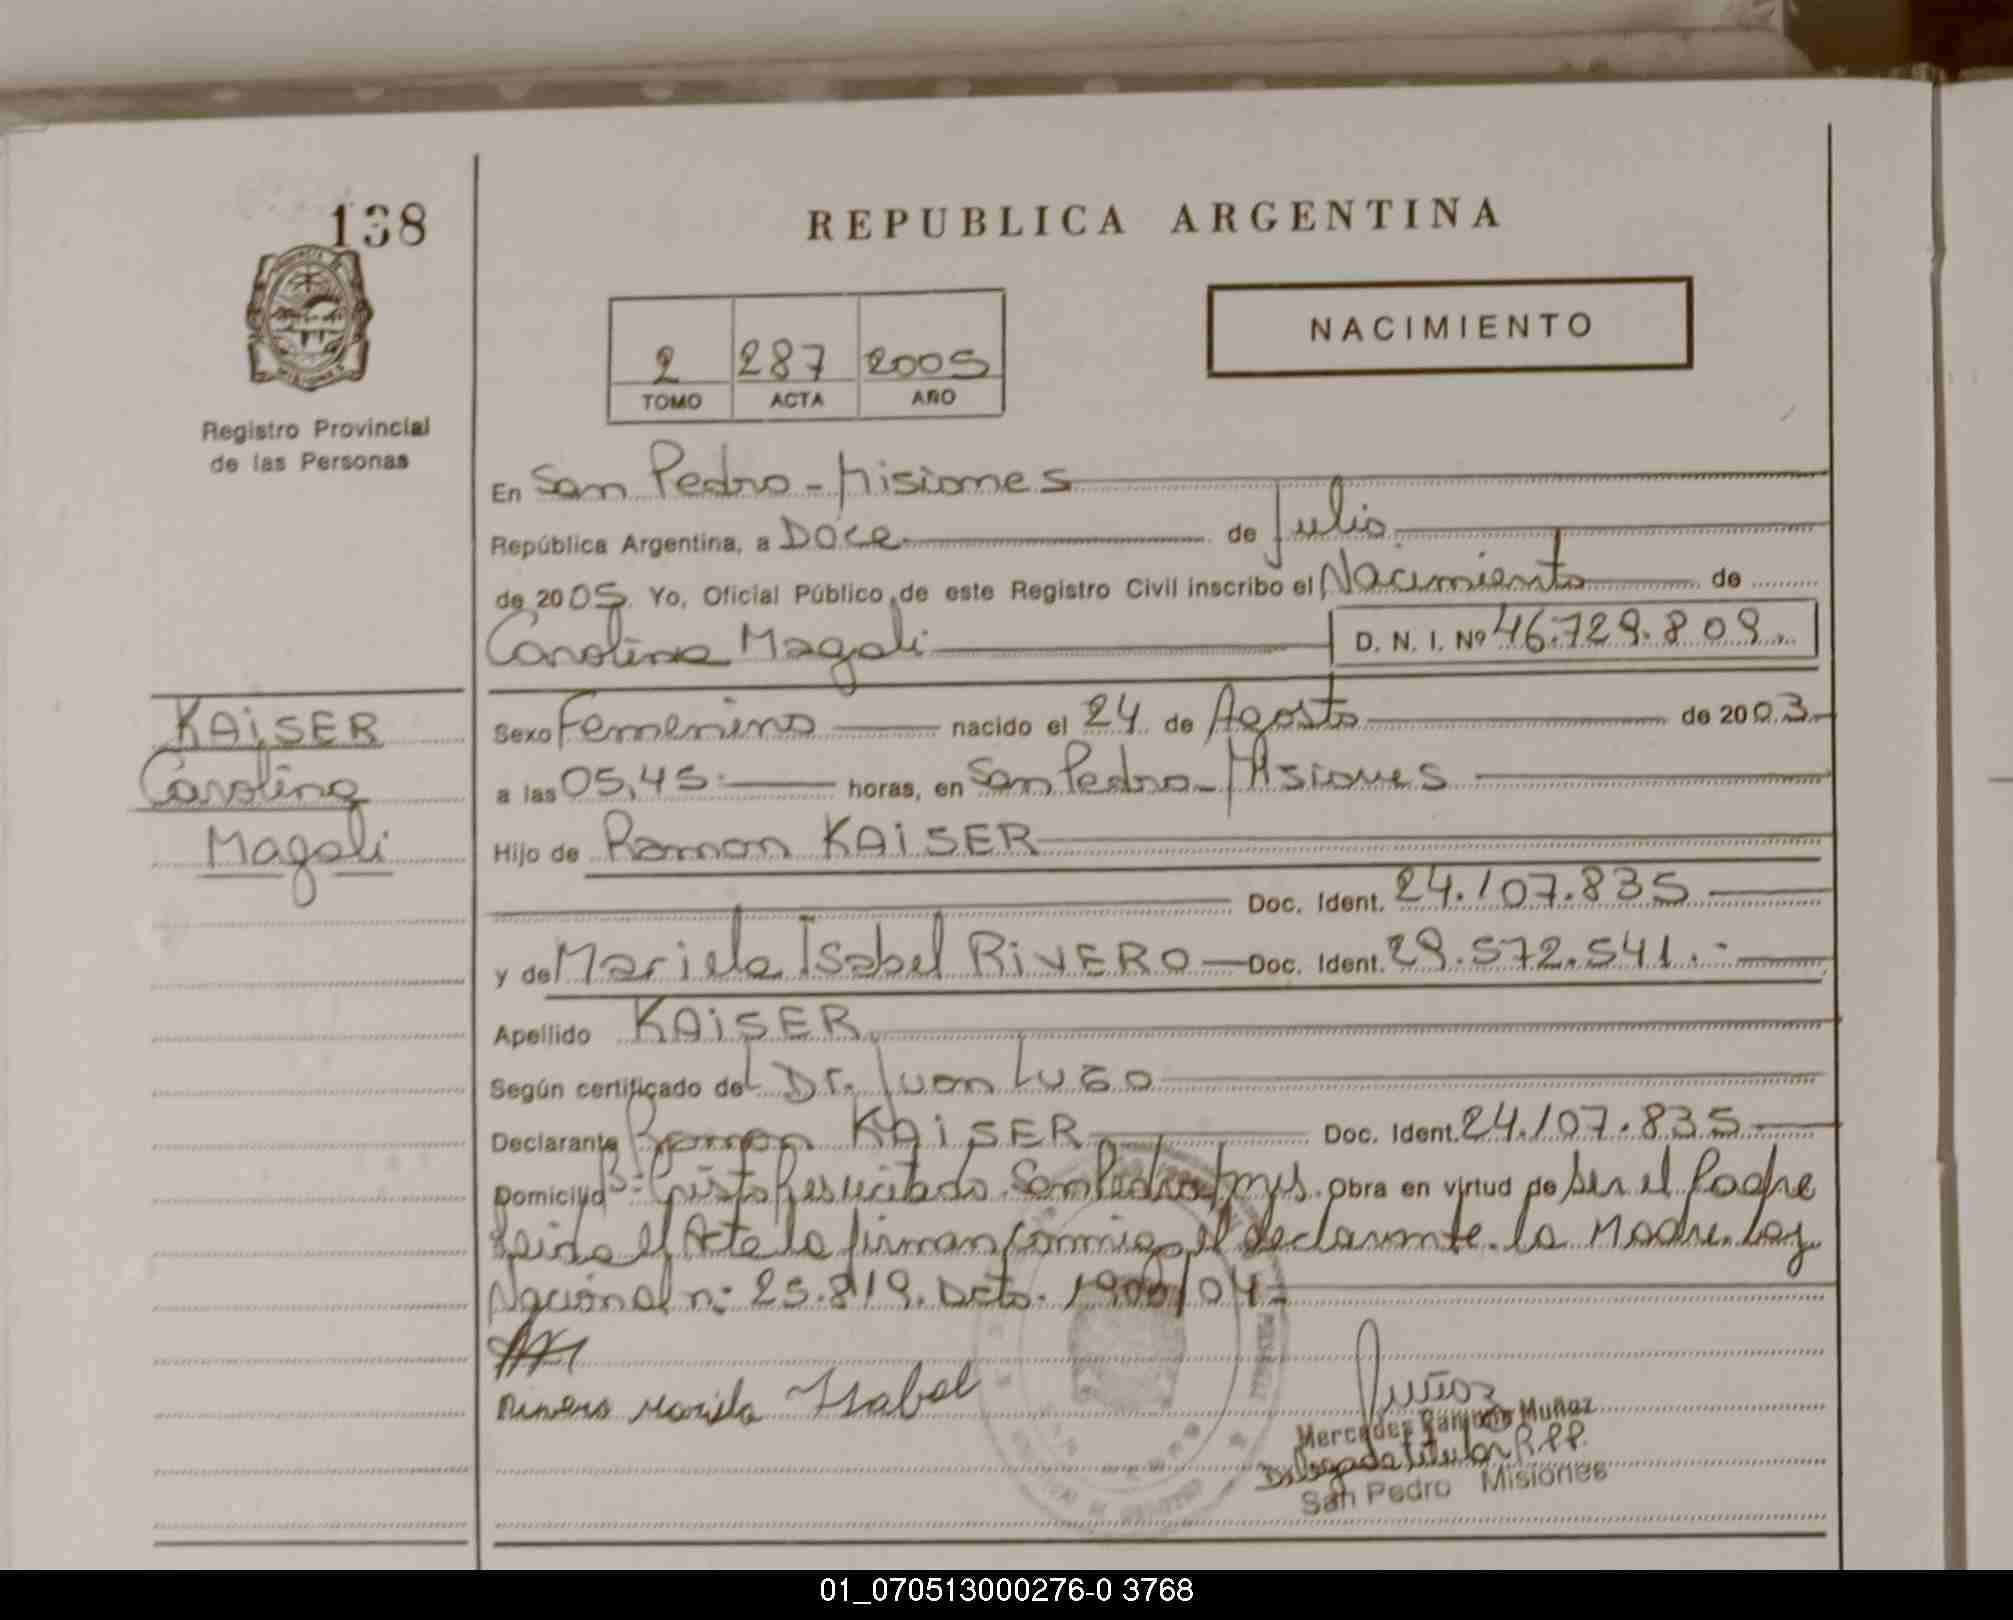 138
Registro Provincial
de las Personas
REPUBLICA ARGENTINA
NACIMIENTO
2 287 2005
TOMO ACTA AÑO
En San Pedro - Misiones
República Argentina, a Doce de Julio
de 2005 Yo, Oficial Público de este Registro Civil inscribo el Nacimiento de
Carolina Magali D. N. I. Nº 46.729.809.
KAiSER
Carolina
Magali
Sexo Femenino nacido el 24 de Agosto de 2003
a las 05,45 horas, en San Pedro - Misiones
Hijo de Ramon KAiSER
Doc. Ident. 24.107.835
y de Mariela Isabel RiVERO Doc. Ident. 29.572.541.
Apellido KAiSER
Según certificado del Dr. Juan
Declarante Ramon KAiSER Doc. Ident. 24.107.835
Domicilio Bº Cristo Resucitado San Pedro Mns. Obra en virtud de ser el Padre
Leida el Acta la firman conmigo el declarante. la Madre. Ley
Nacional nº 25.819. Dcto. /04
Rivero Mariela Isabel
Muñoz
Mercedes Muñoz
Delegada titular R.P.P.
San Pedro Misiones
01_070513000276-0 3768